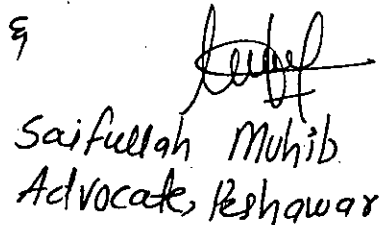 &
Saifullah Muhib
Advocate, Peshawar